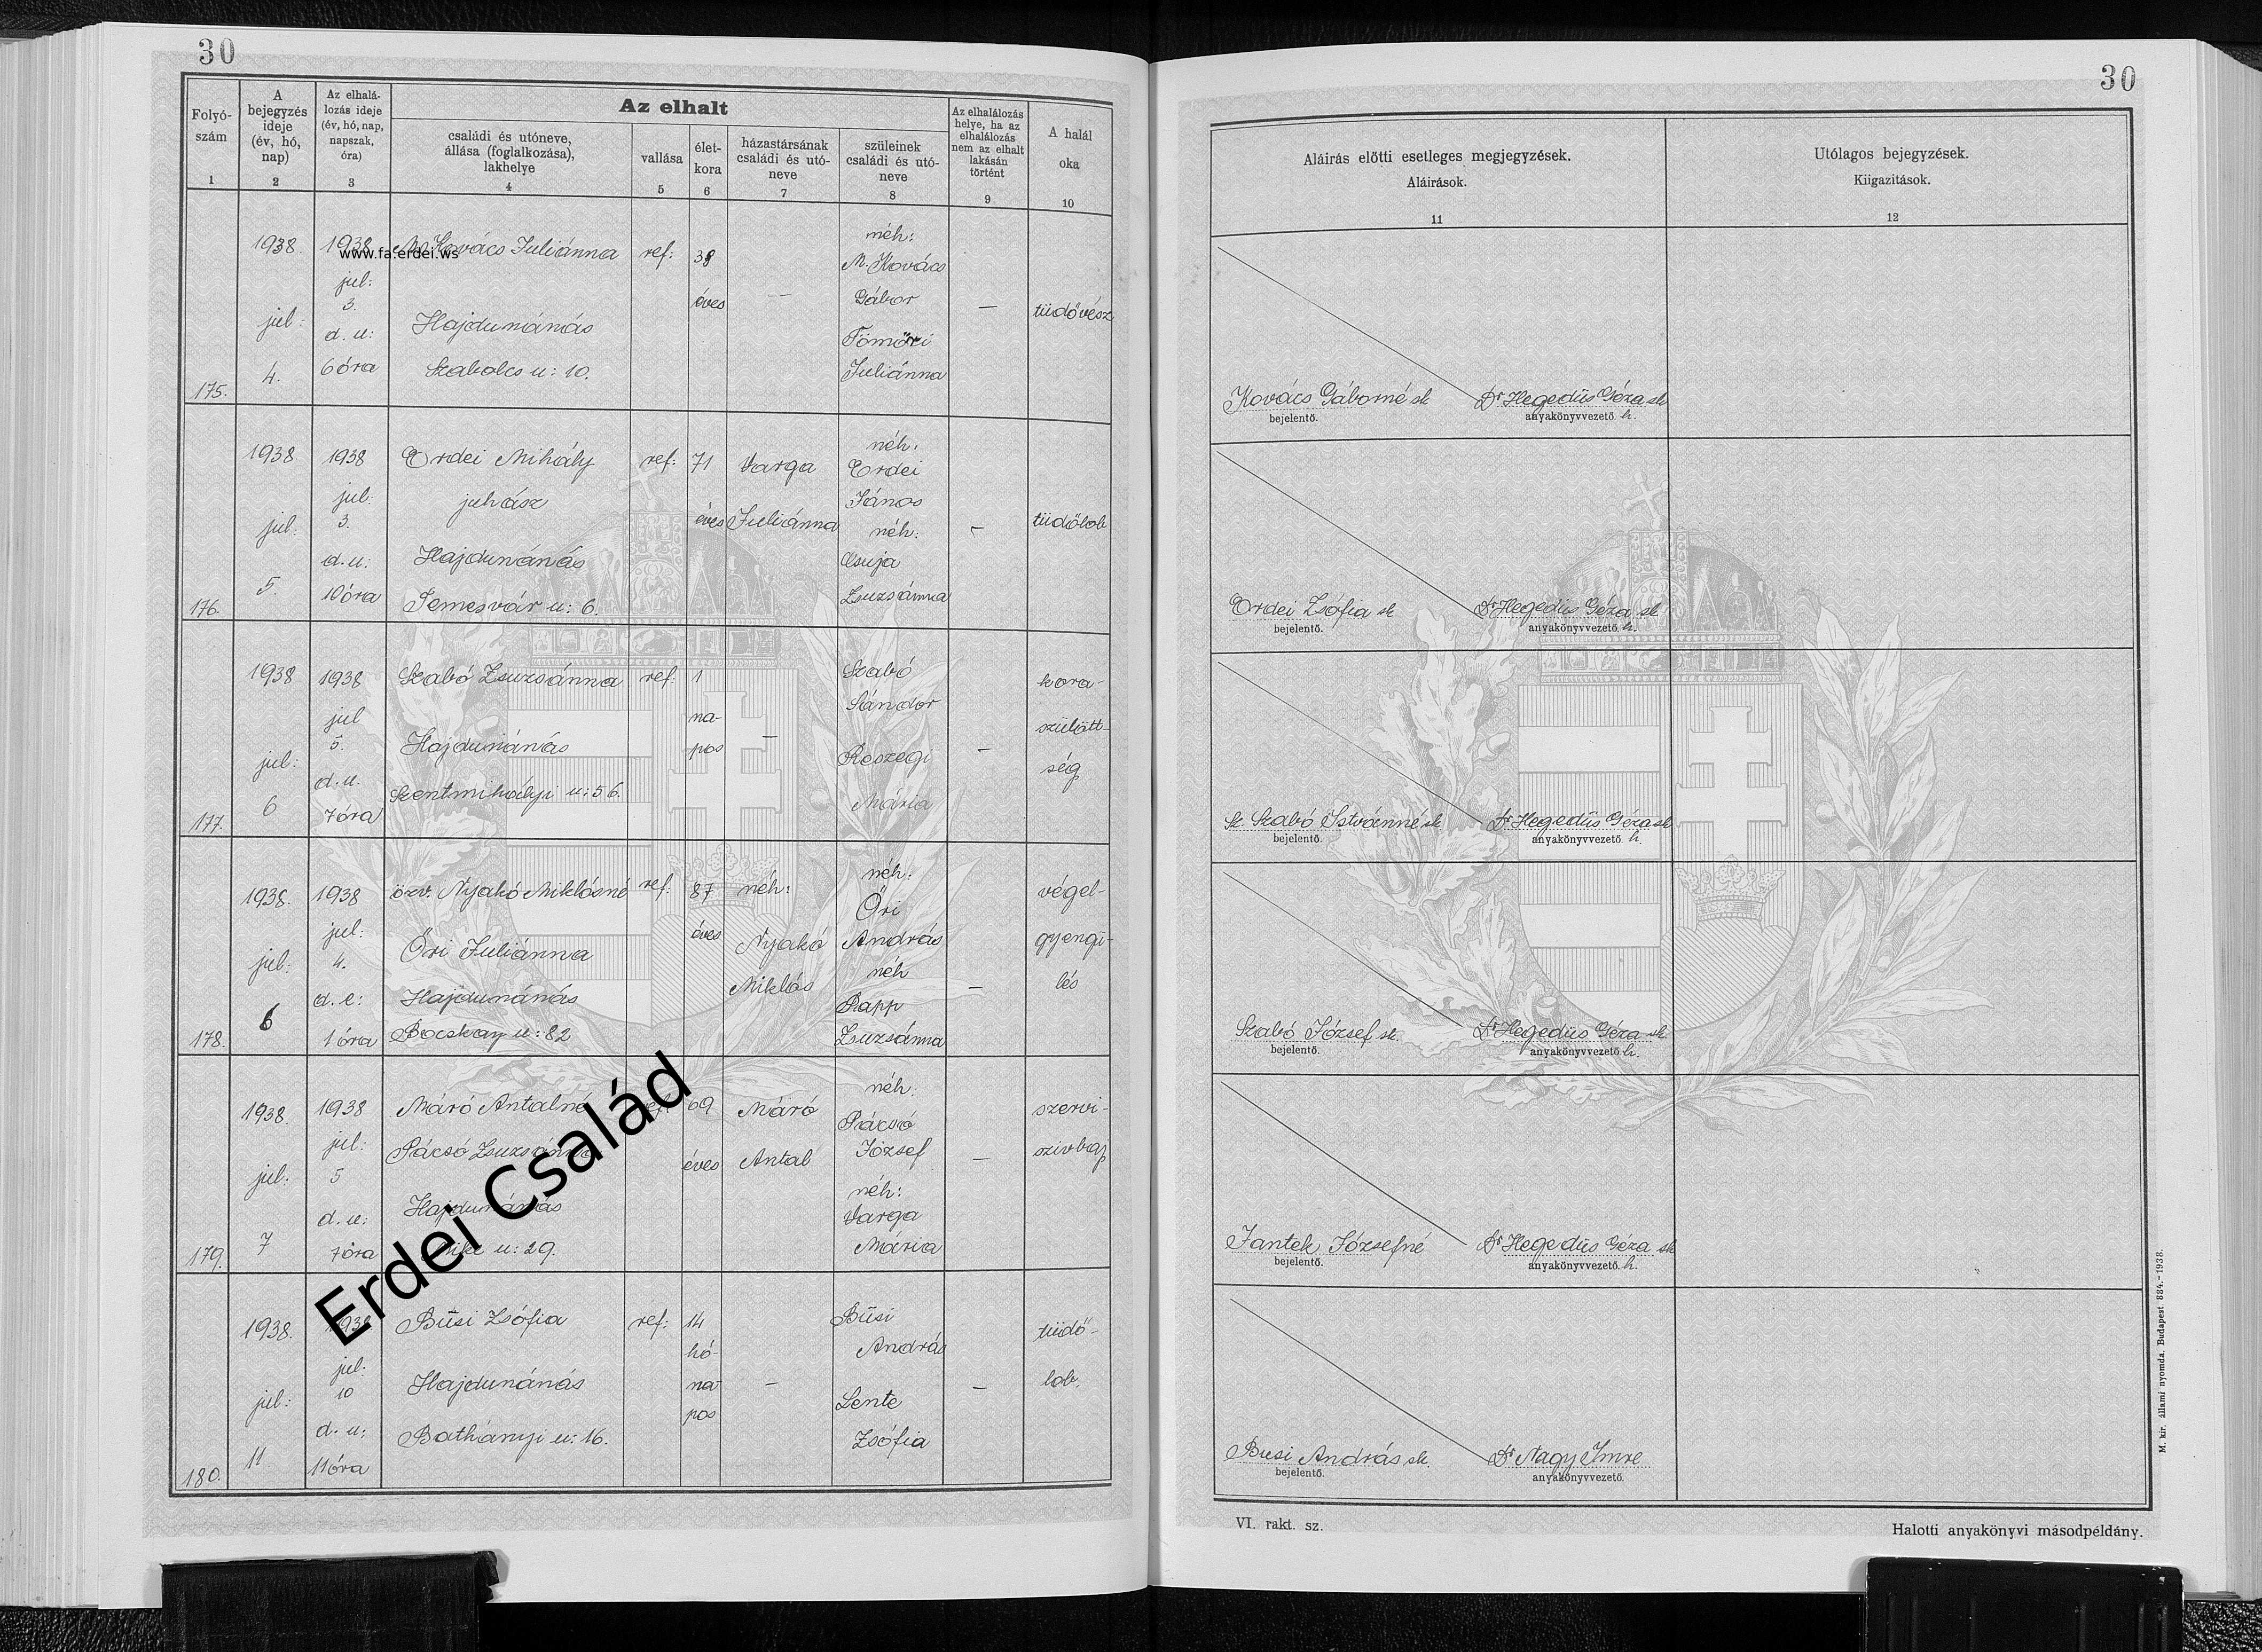 30
Folyó-
szám
1
A
bejegyzés
ideje
(év, hó,
nap)
2
Az elhalá-
lozás ideje
(év, hó, nap,
napszak,
óra)
3
Az elhalt
családi és utóneve,
állása (foglalkozása),
lakhelye
4
vallása
5
élet-
kora
6
házastársának
családi és utó-
neve
7
szüleinek
családi és utó-
neve
8
Az elhalálozás
helye, ha az
elhalálozás
nem az elhalt
lakásán
történt
9
A halál
oka
10
175.
1938.
jul:
4.
1938
jul:
3.
d. u:
6 óra
M. Kovács Juliánna
Hajdunánás
Szabolcs u: 10.
ref:
38
éves
—
néh:
M. Kovács
Gábor
Tömöri
Juliánna
—
tüdővész
176.
1938
jul:
5.
1938
jul:
3.
d. u:
10 óra
Erdei Mihály
juhász
Hajdunánás
Temesvár u: 6.
ref:
71
éves
Varga
Juliánna
néh:
Erdei
János
néh:
Csuja
Zsuzsánna
-
tüdőlob
177.
1938
jul:
6
1938
jul
5.
d. u.
7 óra
Szabó Zsuzsánna
Hajdunánás
Szentmihályi u: 56.
ref:
1
na-
pos
—
Szabó
Sándor
Reszegi
Mária
-
kora-
szülött-
ség
178.
1938.
jul:
6
1938
jul:
4.
d. e:
1 óra
özv. Nyakó Miklósné
Őri Juliánna
Hajdunánás
Bocskay u: 82
ref:
87
éves
néh:
Nyakó
Miklós
néh:
Őri
András
néh
Papp
Zsuzsánna
-
végel-
gyengü-
lés
179.
1938.
jul:
7
1938
jul:
5
d. u:
7 óra
Máró Antalné
Pácsó Zsuzsánna
Hajdunánás
u: 29.
ref:
69
éves
Máró
Antal
néh:
Pácsó
József
néh:
Varga
Mária
—
szervi-
szivbaj
180.
1938.
jul:
11.
1938
jul:
10
d. u:
11 óra
Büsi Zsófia
Hajdunánás
Bathányi u: 16.
ref:
14
hó-
na-
pos
—
Büsi
András
Lente
Zsófia
-
tüdő-
lob.
www.fa.erdei.ws
Erdei Család
30
Aláirás előtti esetleges megjegyzések.
Aláirások.
11
Utólagos bejegyzések.
Kiigazitások.
12
Kovács Gáborné sk
bejelentő.
Dr Hegedüs Géza sk
anyakönyvvezető h.
Erdei Zsófia sk
bejelentő.
Dr Hegedüs Géza sk
anyakönyvvezető h.
Sz. Szabó Istvánné sk
bejelentő.
Dr Hegedüs Géza sk
anyakönyvvezető h.
Szabó József sk.
bejelentő.
Dr Hegedüs Géza sk
anyakönyvvezető h.
Jantek Józsefné
bejelentő.
Dr Hegedüs Géza sk
anyakönyvvezető. h.
Busi András sk.
bejelentő.
Dr Nagy Imre
anyakönyvvezető.
VI. rakt. sz.
Halotti anyakönyvi másodpéldány.
M. kir. állami nyomda. Budapest. 884.-1938.